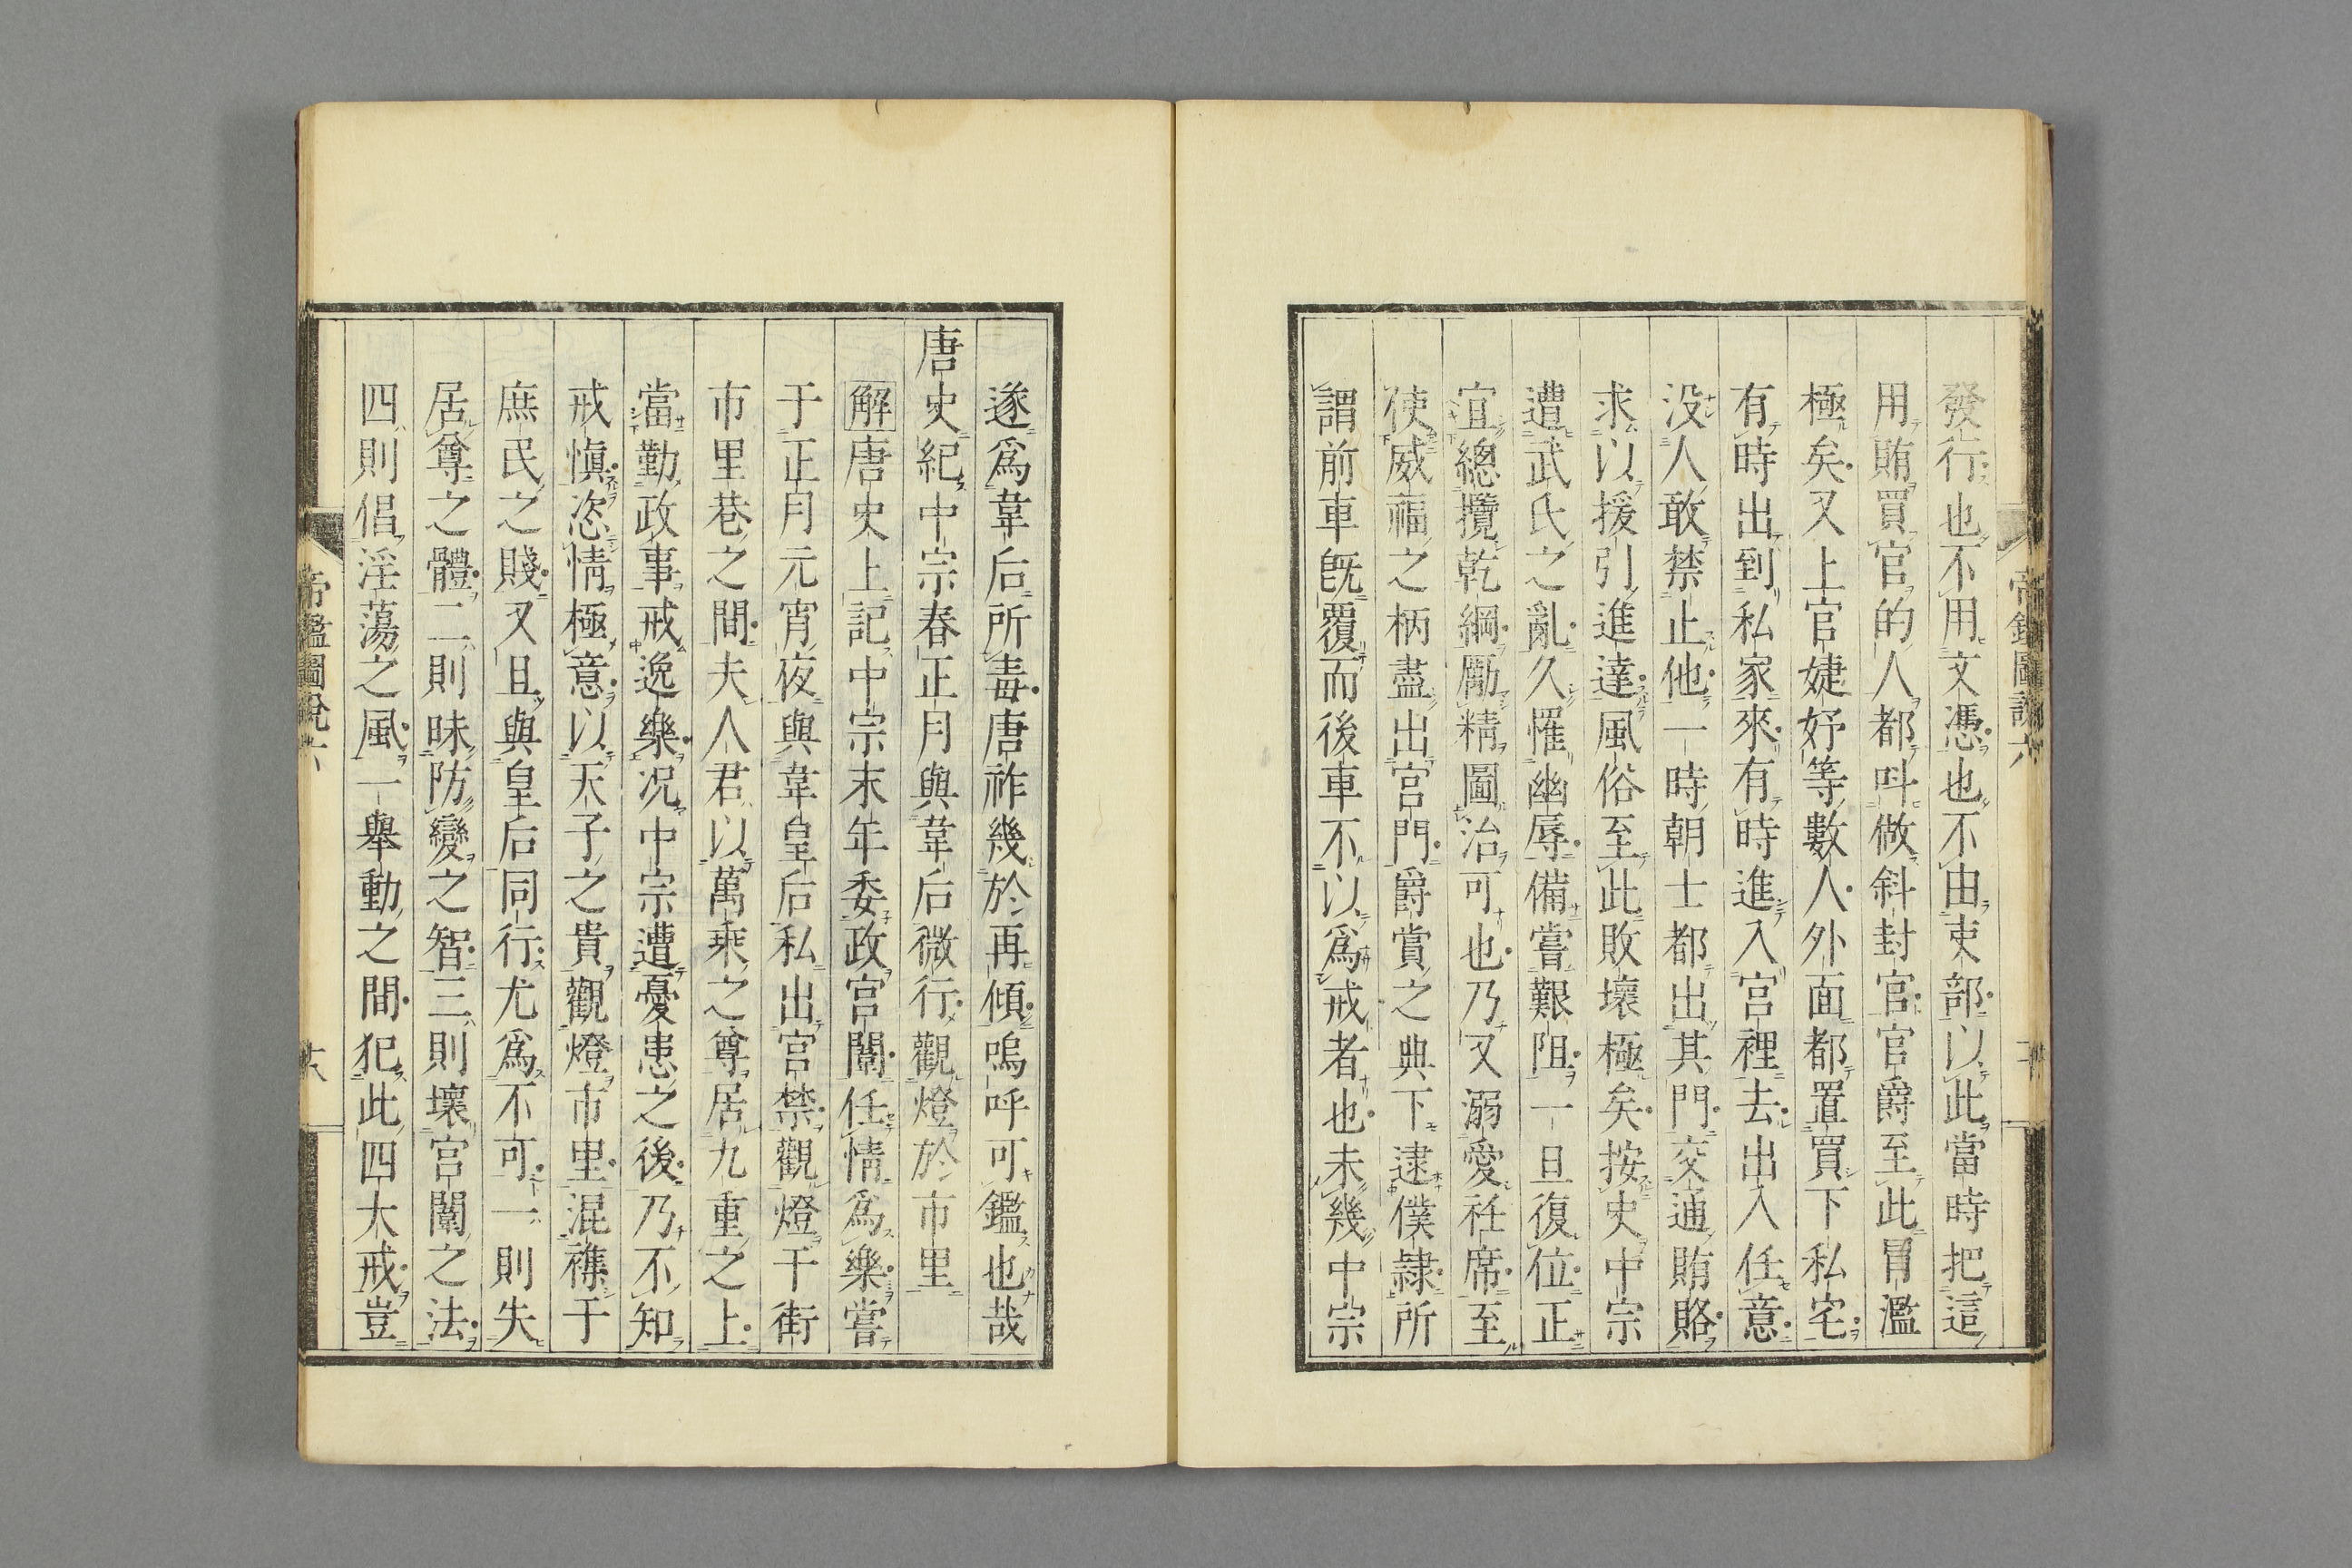 發行也不用文憑也不由吏部以此當時把這
用賄買官的人都呌做斜封官官爵至此冒濫
極矣又上官婕妤等數人外面都置買下私宅
有時出到私家來有時進入宮裡去出入任意
没人敢禁止他一時朝士都出其門交通賄賂
求以援引進達風俗至此敗壞極矣按史中宗
遭武氏之亂久罹幽辱備嘗艱阻一旦復位正
宜總攬乾綱勵精圖治可也乃又溺愛衽席至
使威福之柄盡出宮門爵賞之典下逮僕隷所
謂前車旣覆而後車不以爲戒者也未幾中宗
遂爲韋后所毒唐祚幾於再傾嗚呼可鑑也哉
唐史紀中宗春正月與韋后微行觀燈於市里
解唐史上記中宗末年委政宮闈任情爲樂嘗
于正月元宵夜與韋皇后私出宮禁觀燈于街
市里巷之間夫人君以萬乘之尊居九重之上
當勤政事戒逸樂况中宗遭憂患之後乃不知
戒愼恣情極意以天子之貴觀燈市里混襍于
庶民之賤又且與皇后同行尤爲不可一則失
居尊之體二則昧防變之智三則壞宮闈之法
四則倡淫蕩之風一舉動之間犯此四大戒豈
帝鑑圖說六